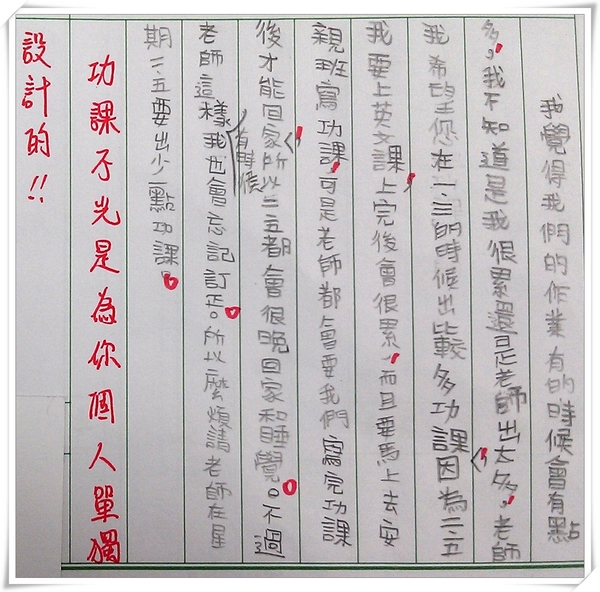 我覺得我們的作業有的時候會有點
多,我不知道是我很累還是老師出太多,老師
我希望您在一、三的時候出比較多功課,因為二、五
我要上英文課,上完後會很累,而且要馬上去安
親班寫功課,可是老師都會要我們寫完功課
後才能回家,所以二五都會很晚回家和睡覺。不過
老師這樣我有時候也會忘記訂正。所以麼煩請老師在星
期二、五要出少一點功課。
功課不光是為你個人單獨
設計的!!